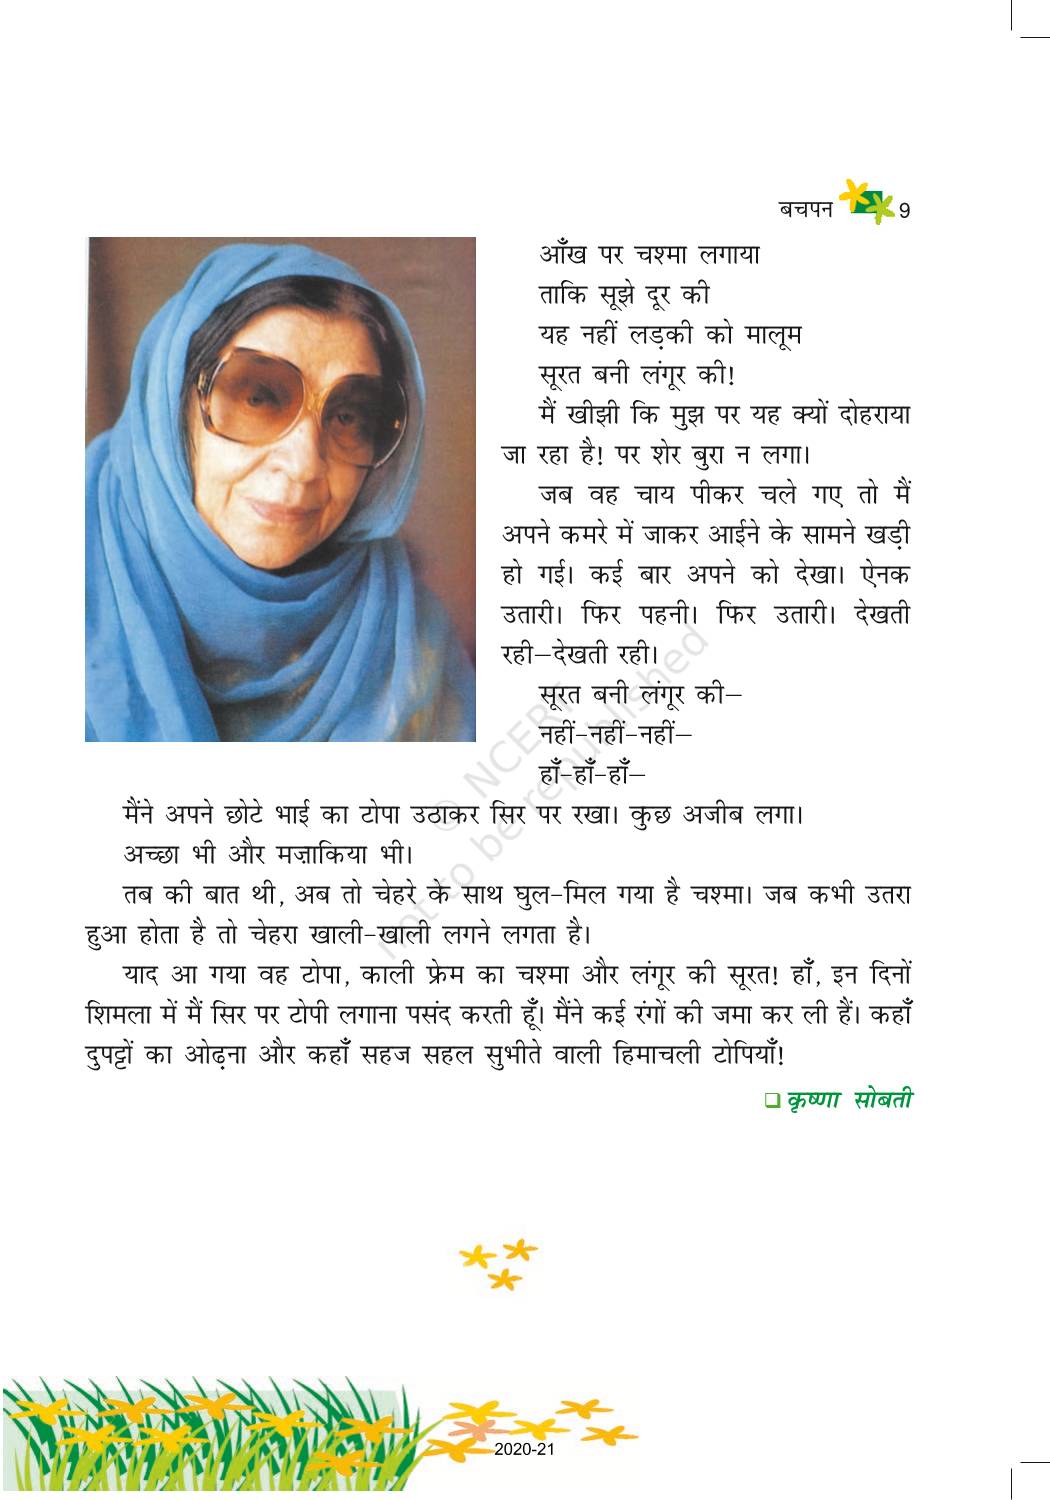 बचपन 9
आँख पर चश्मा लगाया
ताकि सूझे दूर की
यह नहीं लड़की को मालूम
सूरत बनी लंगूर की!
मैं खीझी कि मुझ पर यह क्यों दोहराया
जा रहा है! पर शेर बुरा न लगा।
जब वह चाय पीकर चले गए तो मैं
अपने कमरे में जाकर आईने के सामने खड़ी
हो गई। कई बार अपने को देखा। ऐनक
उतारी। फिर पहनी। फिर उतारी। देखती
रही–देखती रही।
सूरत बनी लंगूर की–
नहीं-नहीं-नहीं–
हाँ-हाँ-हाँ–
मैंने अपने छोटे भाई का टोपा उठाकर सिर पर रखा। कुछ अजीब लगा।
अच्छा भी और मज़ाकिया भी।
तब की बात थी, अब तो चेहरे के साथ घुल-मिल गया है चश्मा। जब कभी उतरा
हुआ होता है तो चेहरा खाली-खाली लगने लगता है।
याद आ गया वह टोपा, काली फ्रेम का चश्मा और लंगूर की सूरत! हाँ, इन दिनों
शिमला में मैं सिर पर टोपी लगाना पसंद करती हूँ। मैंने कई रंगों की जमा कर ली हैं। कहाँ
दुपट्टों का ओढ़ना और कहाँ सहज सहल सुभीते वाली हिमाचली टोपियाँ!
❑ कृष्णा सोबती
© NCERT
not to be republished
2020-21